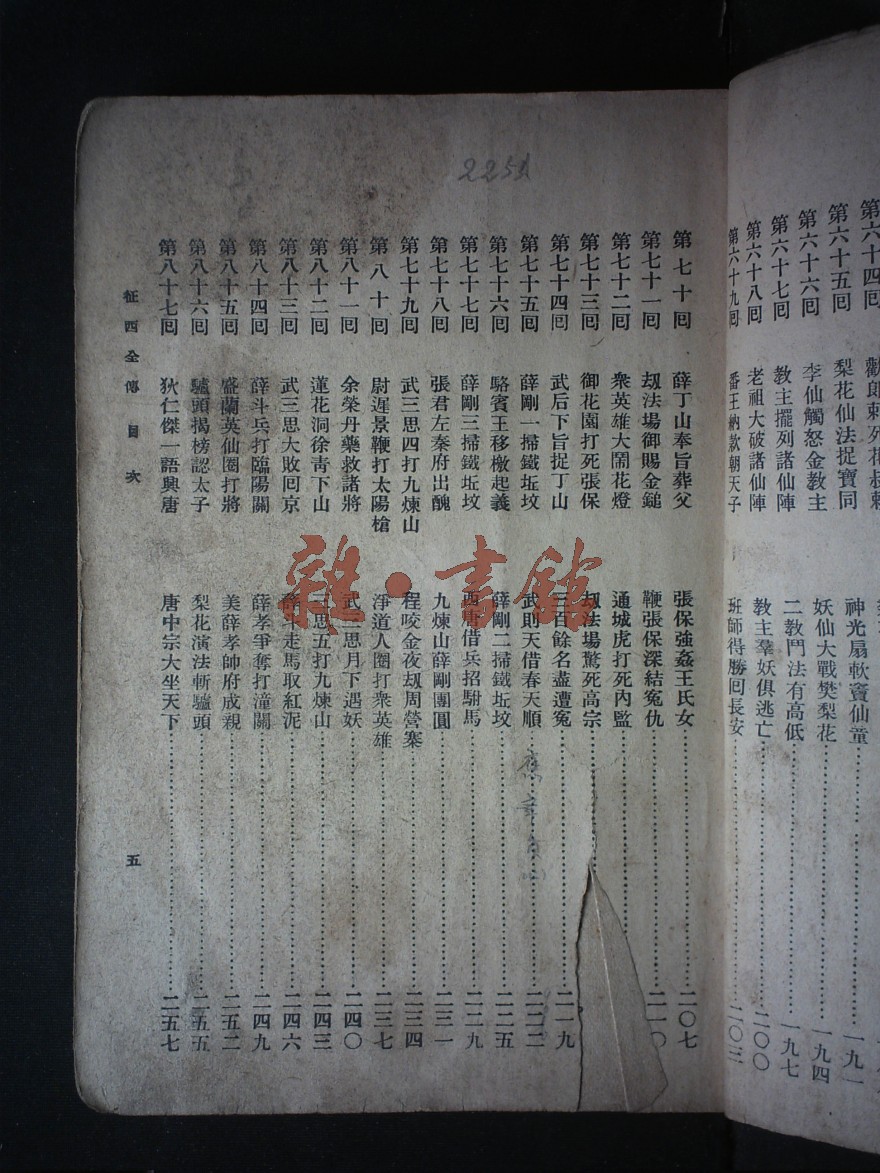 2251
第六十四回
第六十五回 梨花仙法捉寶同 神光扇軟竇仙童 一九一
第六十六回 李仙觸怒金教主 妖仙大戰樊梨花 一九四
第六十七回 教主擺列諸仙陣 二教鬥法有高低 一九七
第六十八回 老祖大破諸仙陣 教主羣妖俱逃亡 二〇〇
第六十九回 番王納款朝天子 班師得勝回長安 二〇三
第七十回 薛丁山奉旨葬父 張保強姦王氏女 二〇七
第七十一回 刼法場御賜金鎚 鞭張保深結冤仇 二一〇
第七十二回 衆英雄大鬧花燈 通城虎打死內監
第七十三回 御花園打死張保 刼法場驚死高宗
第七十四回 武后下旨捉丁山 三百餘名盡遭冤 二一九
第七十五回 薛剛一掃鐵坵坟 武則天借春天順 二二二
第七十六回 駱賓王移檄起義 薛剛二掃鐵坵坟 二二五
第七十七回 薛剛三掃鐵坵坟 西唐借兵招駙馬 二二九
第七十八回 張君左秦府出醜 九煉山薛剛團圓 二三一
第七十九回 武三思四打九煉山 程咬金夜刼周營寨 二三四
第八十回 尉遲景鞭打太陽槍 淨道人圈打衆英雄 二三七
第八十一回 余榮丹藥救諸將 武三思月下遇妖 二四〇
第八十二回 蓮花洞徐青下山 三思五打九煉山 二四三
第八十三回 武三思大敗回京 薛斗走馬取紅泥 二四六
第八十四回 薛斗兵打臨陽關 薛孝爭奪打潼關 二四九
第八十五回 盛蘭英仙圈打將 美薛孝帥府成親 二五二
第八十六回 驢頭揭榜認太子 梨花演法斬驢頭 二五五
第八十七回 狄仁傑一語興唐 唐中宗大坐天下 二五七
征西全傳 目次
五
雜·書館